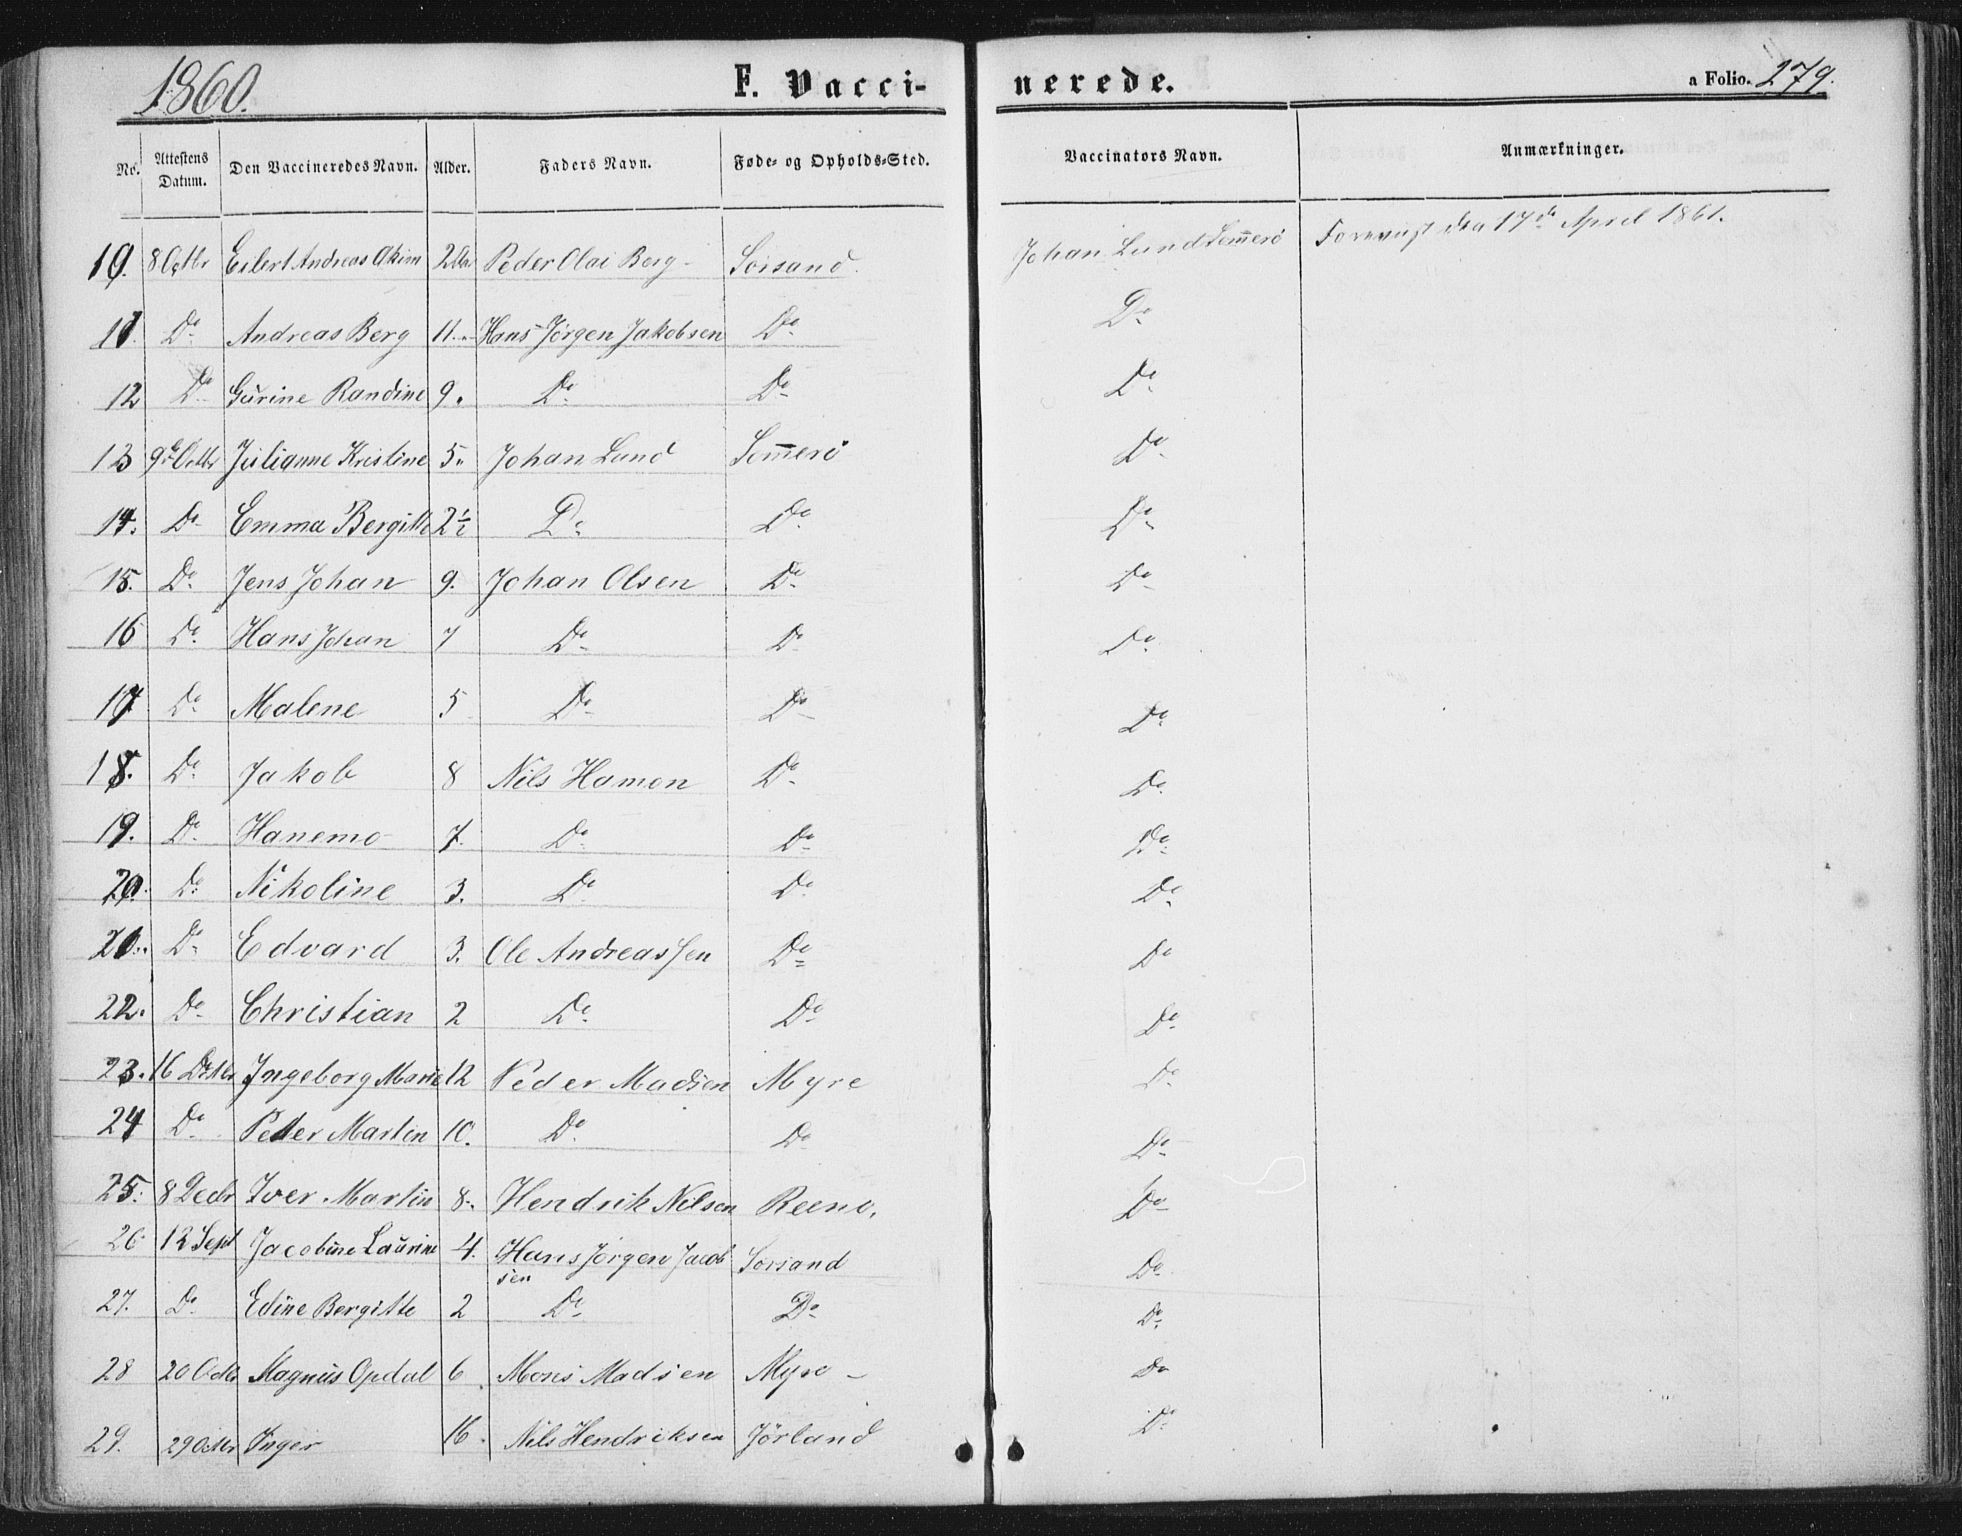 1860.
F. Vacci-
nerede.
a Folio. 279.
No. Attestens Datum. Den Vaccineredes Navn. Alder. Faders Navn. Føde- og Opholds-Sted. Vaccinators Navn. Anmærkninger.
10. 8 Octbr Eilert Andreas Akim Peder Olai Berg - Sorsand. Johan Lund Som̅erø den 17de April 1861.
11. Do Andreas Berg 11. Hans Jørgen Jakobsen Do Do
12 Do Gurine Randine 9. Do Do Do
13 9de Octbr Julianne Kristine 5. Johan Lund Som̅erø Do
14. Do Emma Bergitte 2½ Do Do Do
15. Do Jens Johan 9. Johan Olsen Do Do
16 Do Hans Johan 7 Do Do Do
17 Do Malene 5 Do Do Do
18. Do Jakob 8 Nils Hamon Do Do
19. Do Hanemo 7. Do Do Do
20. Do Nikoline 3. Do Do Do
21. Do Edvard 3. Ole Andreassen Do Do
22. Do Christian 2 Do Do Do
23. 16 Ingeborg Marie 12 Peder Madsen Myre Do
24 Do Peder Martin 10. Do Do Do
25. 8 Decbr Iver Martin 8. Hendrik Nilsen Reeno. Do
26. 12 Sept Jacobine Laurine 4. Hans Jørgen Jacob
sen Sorsand Do
27. Do Edine Bergitte 2 Do Do Do
28 20 Octbr Magnus Opdal 6. Mons Madsen Myre - Do
29. 29 Octbr Inger 16. Nils Hendriksen Jørland Do